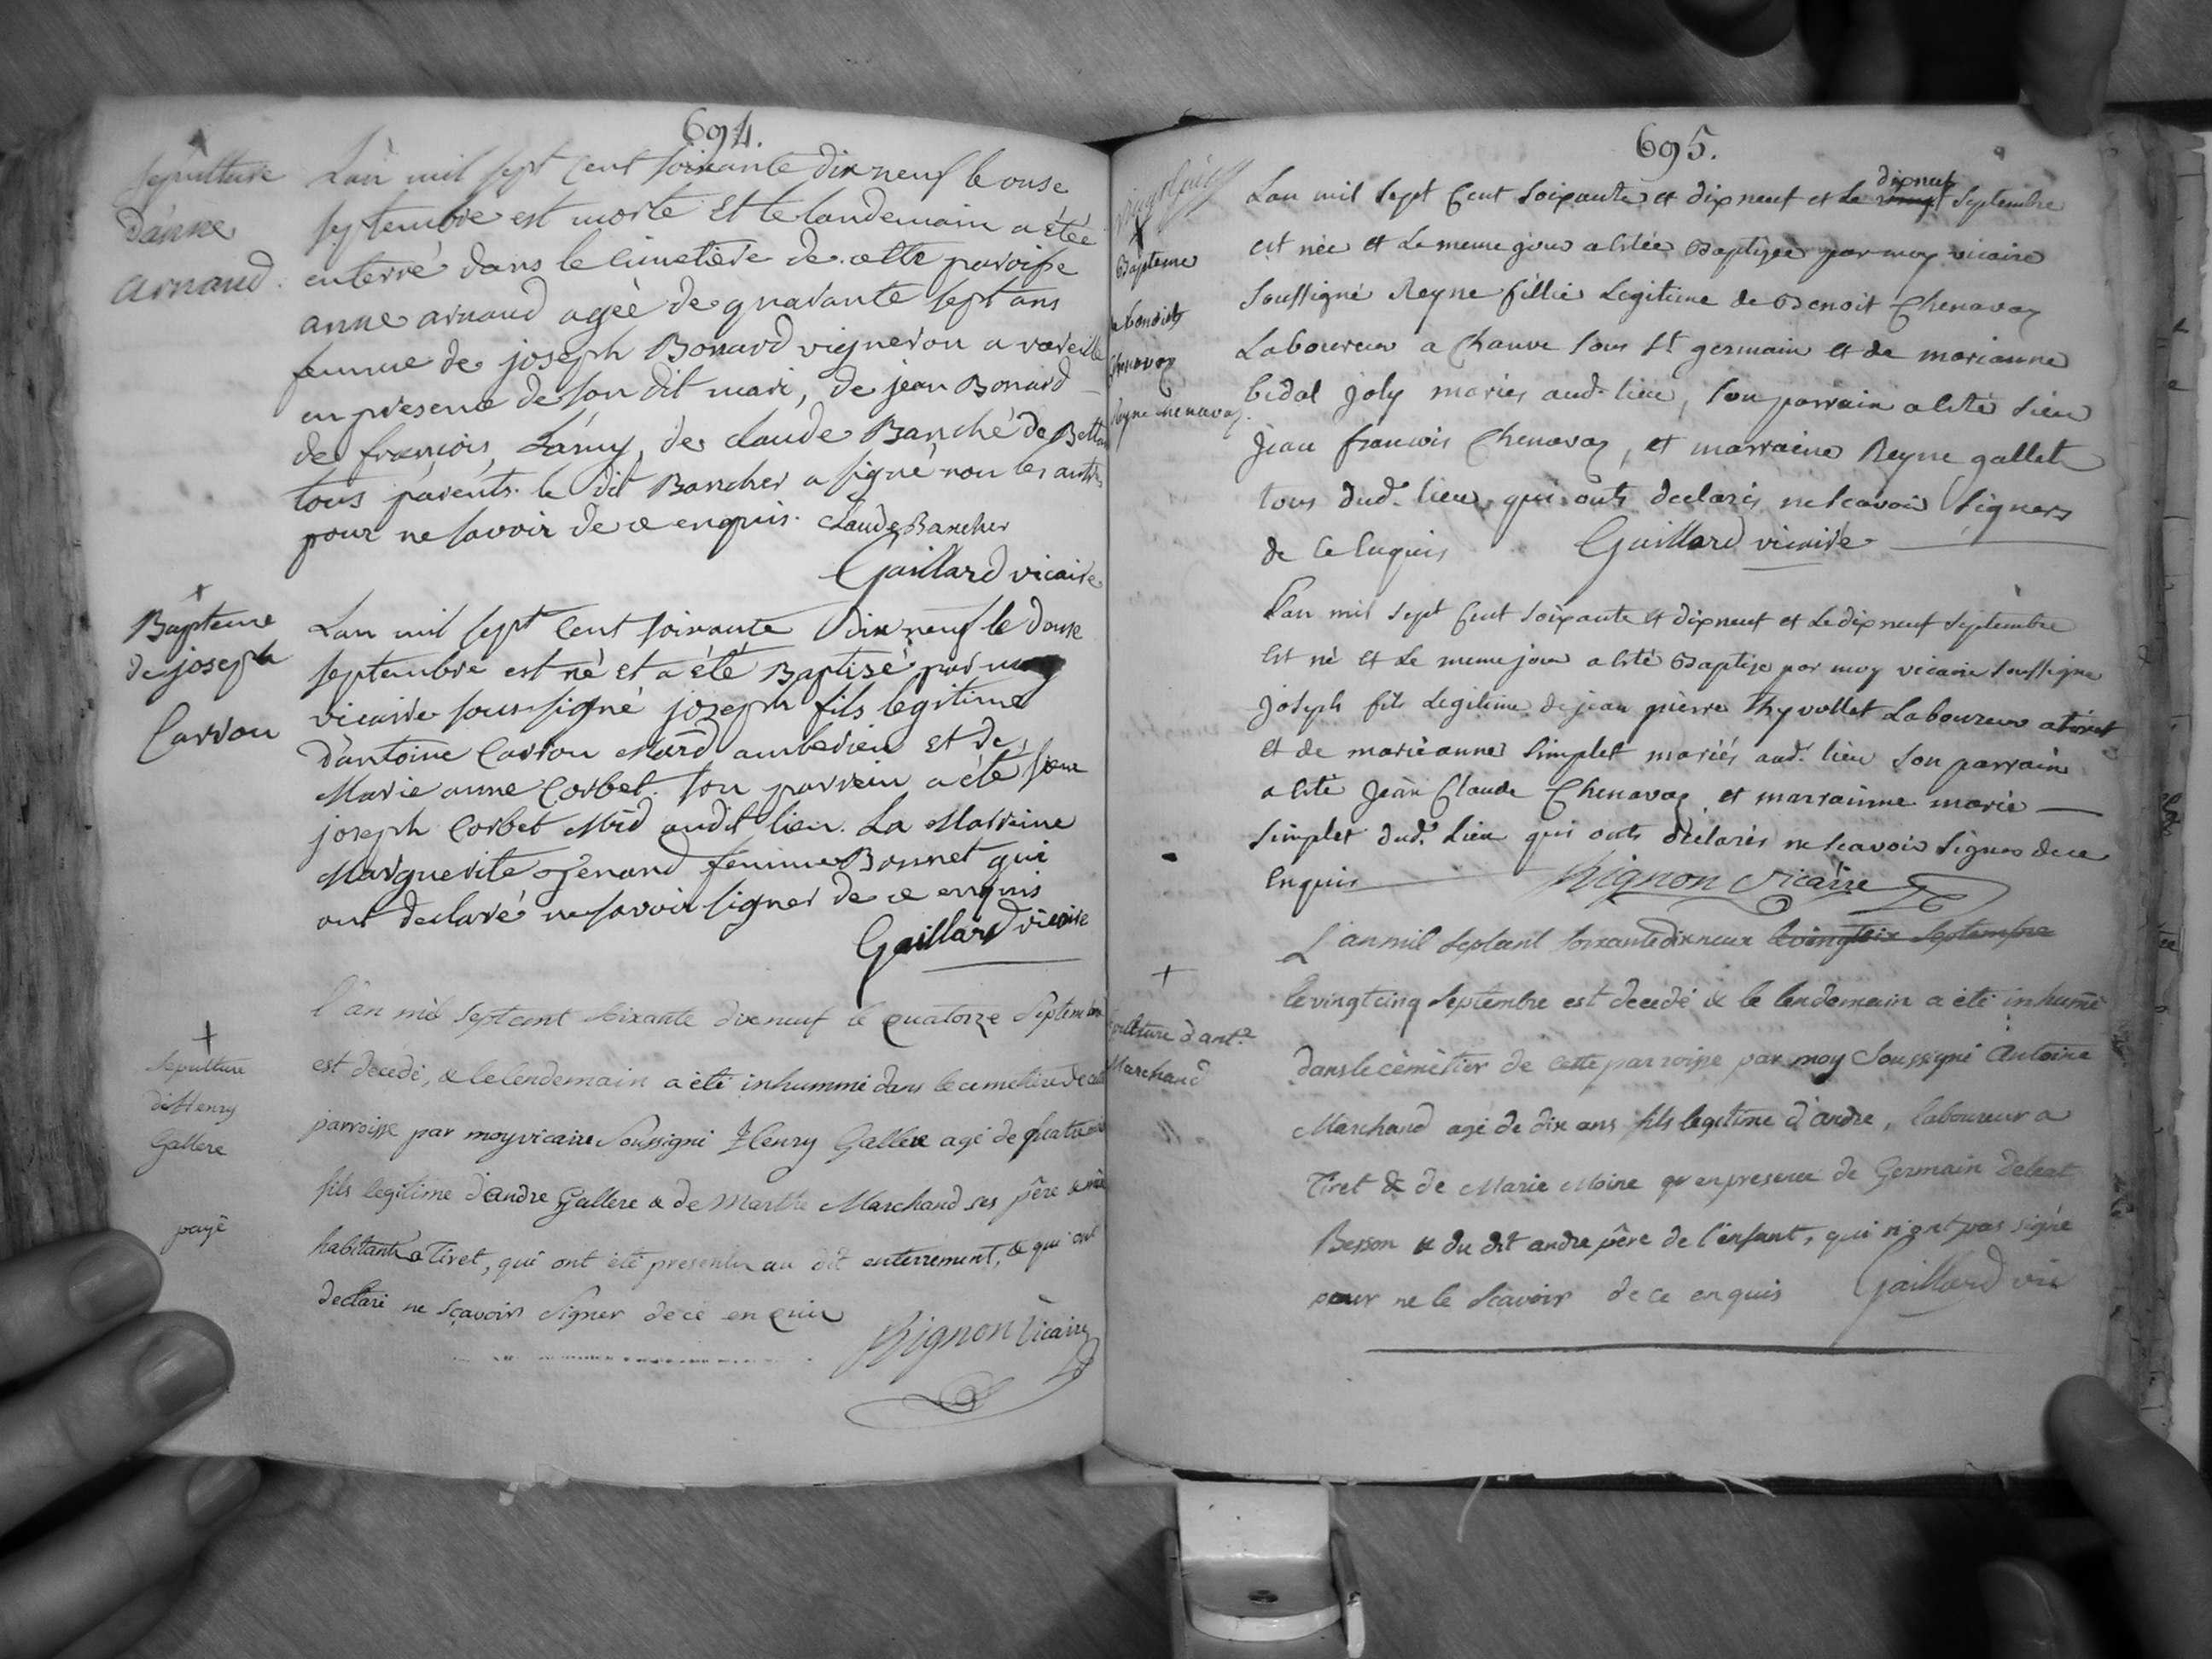 694.
sepulture
d'anne
arnaud.
Lan mil sept cent soixante dix neuf le onse
septembre est morte et le landemain a étée
enterré dans le cimetière de cette paroisse
anne arnaud agée de quarante sept ans
femme de joseph Bonard vigneron a vareille
en presence de son dit mari, de jean Bonard
de françois Lámy, de claude Banché de
tous parents. le dit Bancher a signé non les autres
pour ne savoir de ce enquis. Claude Bancher
Gaillard vicaire
Bapteme
de joseph
Carron
Lan mil sept cent soixante dix neuf le douse
septembre est né et a été Baptisé par moy
vicaire sous-signé joseph fils legitime
d'antoine Carron Mard amberieu et de
Marie anne Corbet. son parrein a été sieur
joseph Corbet Mrd audit lieu. La Marreine
Marguerite femme Bonnet qui
ont declaré ne savoir signer de ce enquis
Gaillard vicaire
+
Sepulture
d'Henry
Gallere
payé
l'an mil septcent soixante dixneuf le quatorze Septembre
est decedé, & le lendemain a été inhummé dans le cemetière de cette
parroisse par moy vicaire Soussigné Henry Gallere agé de quatre
fils legitime d'andre Gallere & de Marthe Marchand ses père & mère
habitants a Tiret, qui ont été presents au dit enterrement, & qui ont
declaré ne sçavoir signer de ce enquis
Mignon Vicaire
695.
Bapteme
de benoit
Chenavaz
Reyne chenavaz
Lan mil sept Cent soixante et dixneuf et le vingt dixneuf septembre
est née et le meme jour a estée Baptisée par moy vicaire
soussigné Reyne fillie legitime de Benoit Chenavaz
Laboureur a Chauve sous st germain et de marianne
bidal joly mariés aud. lieu, son parrain a esté sieur
Jean francois Chenavaz, et marraine Reyne gallet
tous dud. lieu qui onts declarés ne scavoir signer
de ce enquis Gaillard vicaire
Lan mil sept Cent soixante et dixneuf et le dixneuf septembre
est né et le meme jour a esté Baptise par moy vicaire soussigne
joseph fils legitime de jean pierre thyvollet Laboureur a tiret
et de marieanne simplet mariés aud. lieu son parrain
a esté Jean Claude Chenavaz et marrainne marie
simplet dud. lieu qui onts déclarés ne scavoir signer de ce
enquis Mignon vicaire
+
sepulture d'ant.e
Marchand
L'an mil septcent soixante dix neuf le vingt six Septembre
le vingt cinq Septembre est decedé & le lendemain a été inhumé
dans le cémétier de cette parroisse par moy Soussigné Antoine
Marchand agé de dix ans fils legitime d'andre, laboureur a
Tiret & de Marie Moine qu'en presence de Germain
Besson & du dit andre père de l'enfant, qui n'ont pas signé
pour ne le scavoir de ce enquis Gaillard vic